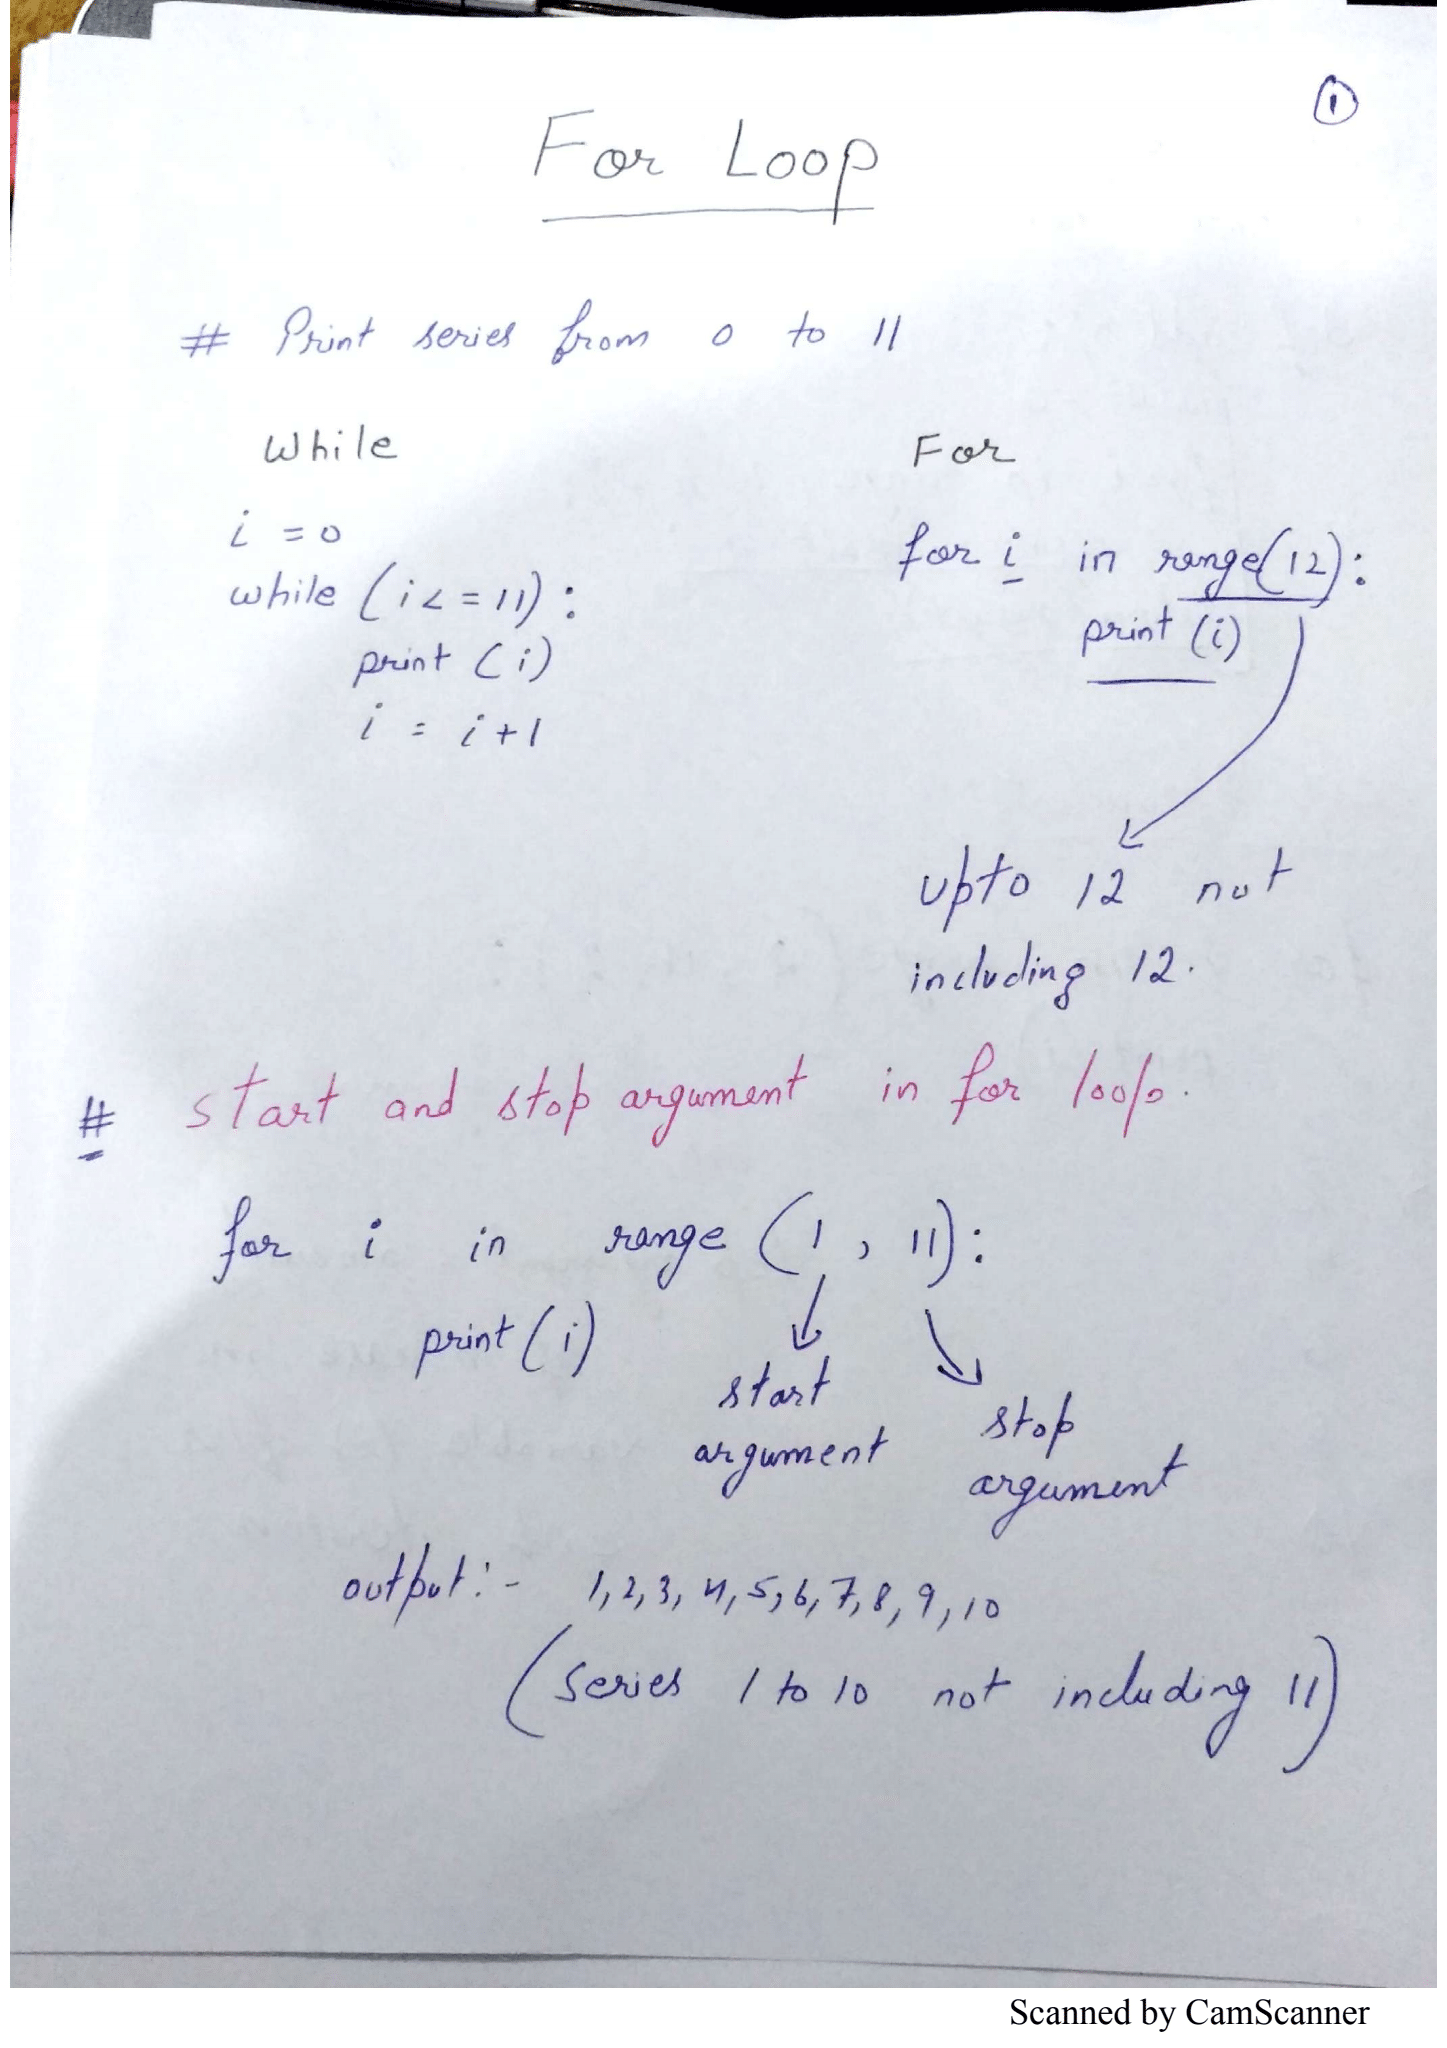 1
For Loop
# Print series from 0 to 11
While
i = 0
while (i <= 11):
print (i)
i = i+1
For
for i in range(12):
print (i)
upto 12 not
including 12.
# start and stop argument in for loop.
for i in range (1, 11):
print (i)
start
argument
stop
argument
output:- 1, 2, 3, 4, 5, 6, 7, 8, 9, 10
(series 1 to 10 not including 11)
Scanned by CamScanner